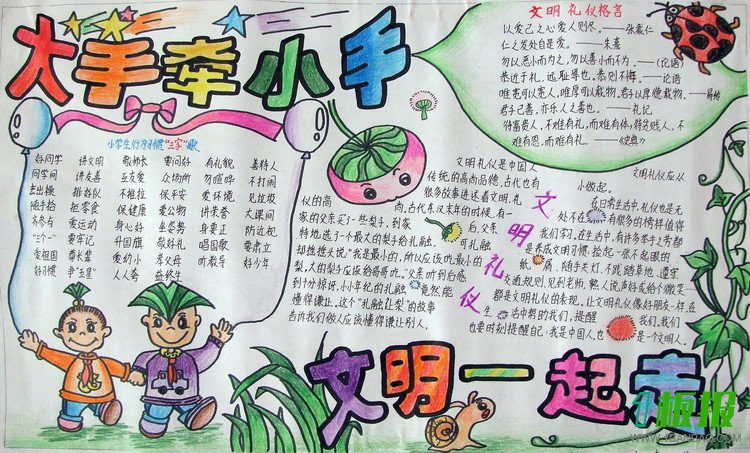 大手牵小手
文明礼仪格言
以爱己之心爱人则尽。——张载仁
仁之发处自是爱。——朱熹
勿以恶小而为之,勿以善小而不为。——《论语》
恭近于礼,远耻辱也。恭则不悔。——论语
唯宽可以容人,唯厚可以载物。君以厚德载物。——易传
君子己善,亦乐人之善也。——礼记
待富贵人,不难有礼,而难有体;待贫贱人,不
难有恩,而难有礼。
小学生行为习惯“三字”歌
好同学 讲文明 敬师长 要问好 有礼貌 善待人
同学间 讲友善 互友爱 众场所 勿喧哗 不打闹
进出操 排好队 不拥挤 保平安 爱环境 见垃圾
随手拾 拒零食 保健康 爱公物 讲荣誉 大课间
齐参与 爱运动 身心好 坐姿势 身要正 防近视
“三个一” 要牢记 升国旗 敬好礼 唱国歌 要肃立
爱祖国 尊长辈 爱幼小 孝父母 听教导 好少年
好习惯 争“五星” 人人夸 益终生
文明礼仪
文明礼仪是中国人
传统的高尚品德,古代也有
很多故事讲述着文明,礼
仪的高尚,古代东汉末年的时候,有一
家的父亲买了一些梨子,到家后,父亲
特地选了一个最大的梨子给孔融,可孔融
却摇摇头说:“我是最小的,所以应该吃最小的
梨,大的梨子应该给哥哥吃。”父亲听到后感
到十分惊讶,小小年纪的孔融竟然能
懂得谦让。这个“孔融让梨”的故事
告诉我们做人应该懂得谦让别人。
文明礼仪应从
小做起。
在日常生活中,礼仪也是无
处不在的,有很多的榜样值得
我们学习。在生活中,有许多举手之劳都
是养成文明习惯:捡起一张不起眼的
纸屑、随手关灯、不践踏草地、遵守
交通规则、见到老师、熟人说声好或给个微笑…
都是文明礼仪的表现。让文明礼仪像好朋友一样,在
生活中帮助我们,提醒我们,我们
也要时刻提醒自己:我是中国人,也是一个文明人。
文明一起走
板报
WWW.1BANBAO.COM